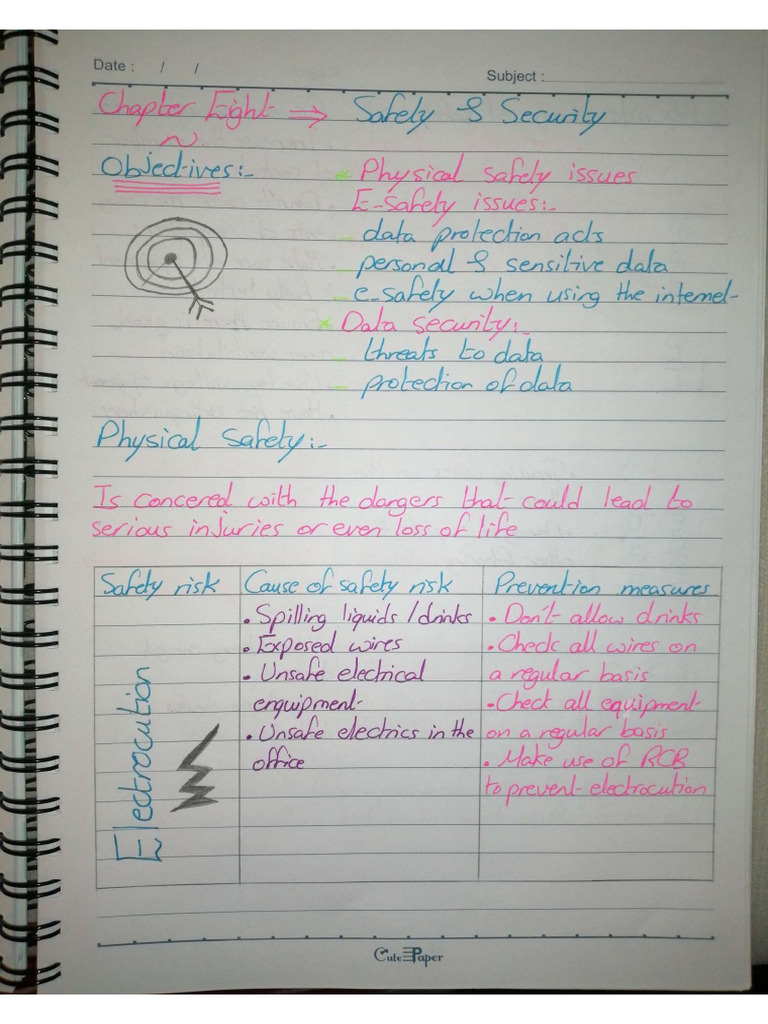 Date : / /
Subject :
Chapter Eight ⇒ Safety & Security
Objectives:-
* Physical safety issues
E-Safety issues:-
- data protection acts
- personal & sensitive data
- e-safety when using the internet
* Data security:-
- threats to data
- protection of data
Physical Safety:-
Is concered with the dangers that could lead to
serious injuries or even loss of life
Safety risk
Cause of safety risk
Prevention measures
Electrocution
• Spilling liquids / drinks
• Exposed wires
• Unsafe electrical
enquipment
• Unsafe electrics in the
office
• Don't allow drinks
• Check all wires on
a regular basis
• Check all equipment
on a regular basis
• Make use of RCB
to prevent electrocution
Cute Paper